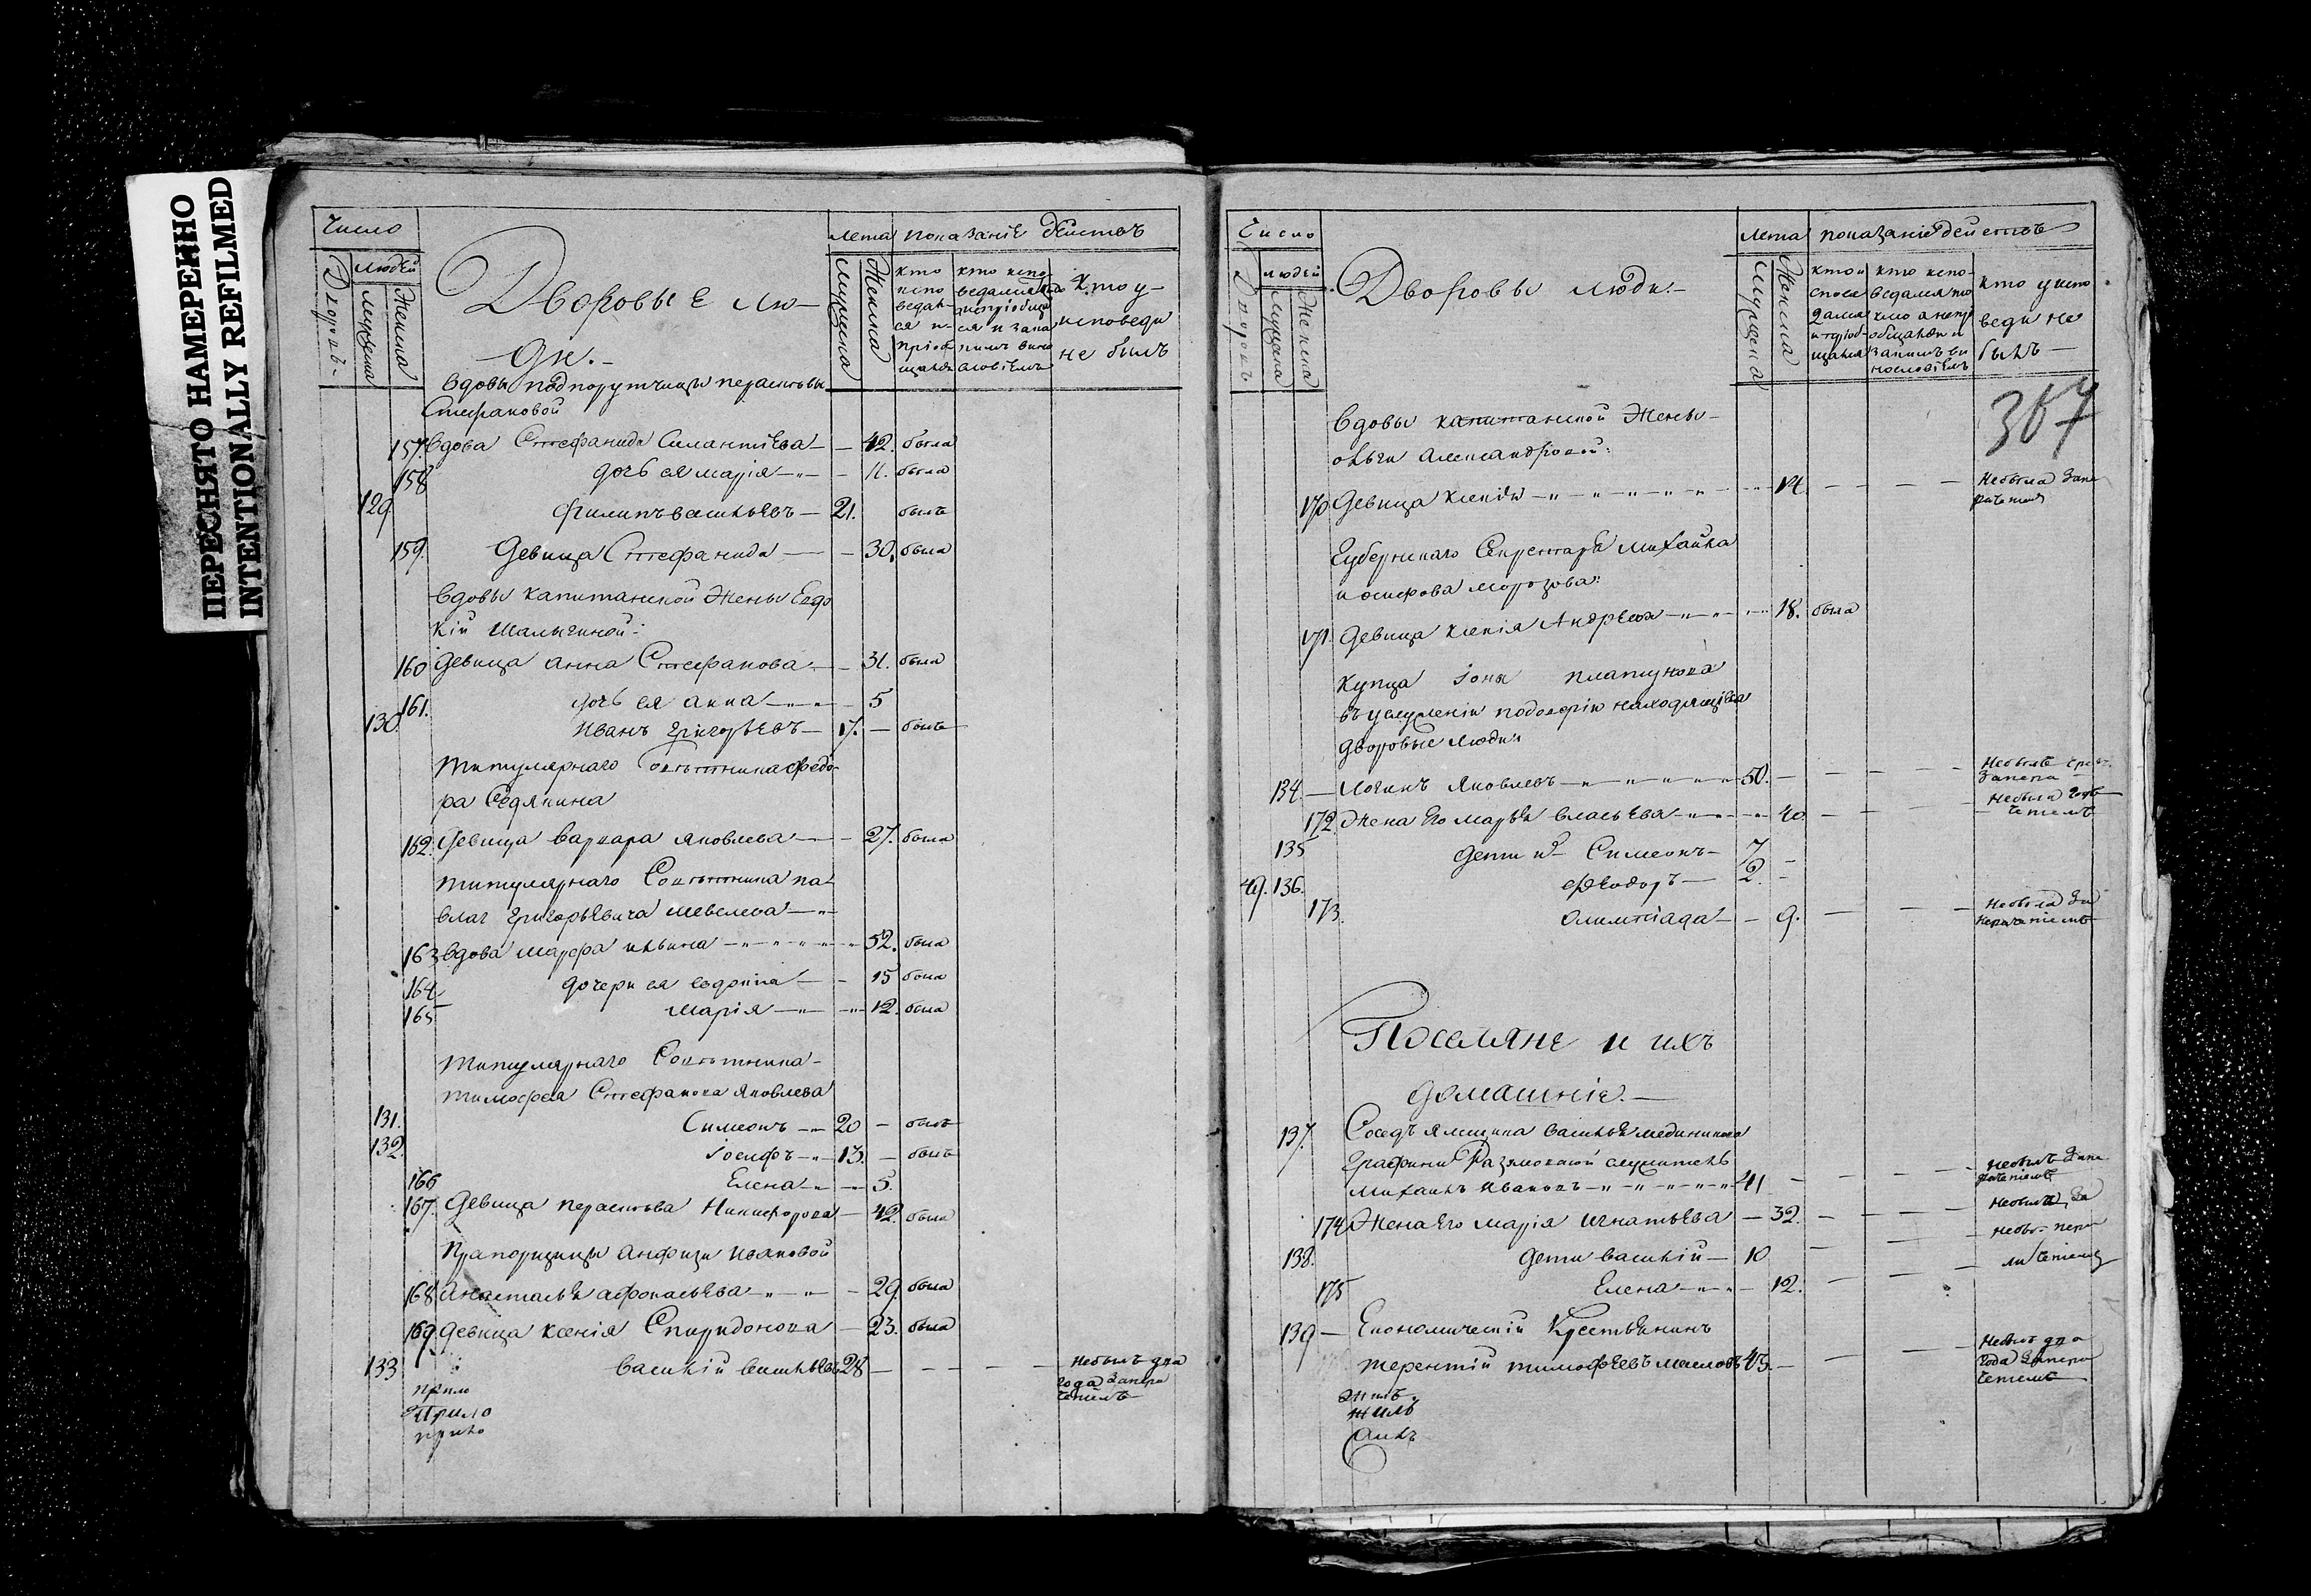 ПЕРЕСНЯТО НАМЕРЕННО
INTENTIONALLY REFILMED
Число
Дворовъ
людей
мужеска
Женска
Дворовые лю-
ди.-
лета
мужска
Женска
показаніе действъ
кто испо ведал ся и пріоб щался
кто испо-
ведался а
не пріобщил
ся и за ка
ким вино
словіемъ
Кто у
исповеди
не былъ
вдовы подпорутчицы перасковьи
Стефановой
157. вдова Стефанида Силантіева — 42. была
158 дочь ея марія — 11. была
129 Филипъ васильевъ — 21. былъ
159. Девица Стефанида — 30. была
вдовы капитанской Жены Евдо
кіи Шалыгиной:
160 девица анна Стефанова — 31. была
161. дочь ея анна — 5
130 Иванъ григорьевъ — 17. — былъ
титулярнаго Советника федо-
ра Седякина
162. девица варвара яковлева — 27. была
титулярнаго Советника па-
влаг григорьевича шевелева
163 вдова марфа ильина — 52. была
164 дочери ея евдокіа — 15 была
165 марія — 12. была
титулярнаго Советника
тимофея Стефанова яковлева
131. Симеонъ — 20 — былъ
132. іосифъ — 13. — былъ
166 Елена — 5.
167. девица перасковья Никифорова — 42. была
Прапорщицы анфизы ивановой
168 анастасья афонасьева — 29. была
169 девица ксенія Спиридонова — 23. была
133 василій васильевъ 28 — — — Небылъ два
года за нера
ченіемъ
Число
Дворовъ
людей
мужеска
Женска
Дворовы люди.-
лета
мужеска
Женска
показаніе действъ
кто у испо
веди не
былъ —
367
вдовы капитанской Жены
ольги александровой:
170 девица ксенія — 14. — — — Небыла за не
раченіемъ
Губернскаго Секретаря михайла
иосифова морозова:
171. девица ксенія Андреева — 18. была
купца іоны платунова
въ услуженіи находящіяся
дворовые люди:
134. — логинъ яковлевъ — 50. — — — Небылъ
172. Жена его марья власьева — 40 — —
135 дети их Симеонъ — 7 —
49. 136. Феодоръ — 2. —
173. Олимпіада — 9. — — Небыла за
нераченіемъ
Поселяне и ихъ
домашніе.—
137. Соседъ ямщика василья медникова
графини Разумовской служитель
михаилъ ивановъ — 41 — — — Небылъ за не
раченіемъ
174 Жена его марія игнатьева — 32. — — — Небыла за
138. дети василій — 10 — — — небы- нера
175 Елена — 12. — — — ли ченіемъ
139 — Економическій Крестьянинъ
терентій тимофеевъ 43. — — — Небылъ два
года за нера
ченіемъ